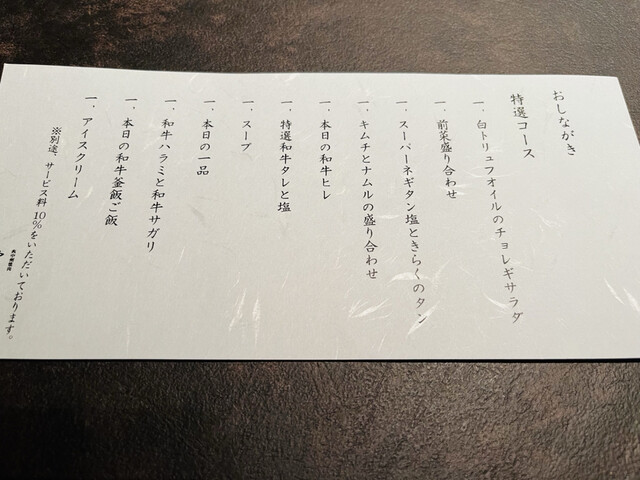 おしながき
特選コース
一、白トリュフオイルのチョレギサラダ
一、前菜盛り合わせ
一、スーパーネギタン塩ときらくのタン
一、キムチとナムルの盛り合わせ
一、本日の和牛ヒレ
一、特選和牛タレと塩
一、スープ
一、本日の一品
一、和牛ハラミと和牛サガリ
一、本日の和牛釜飯ご飯
一、アイスクリーム
※別途、サービス料10%をいただいております。